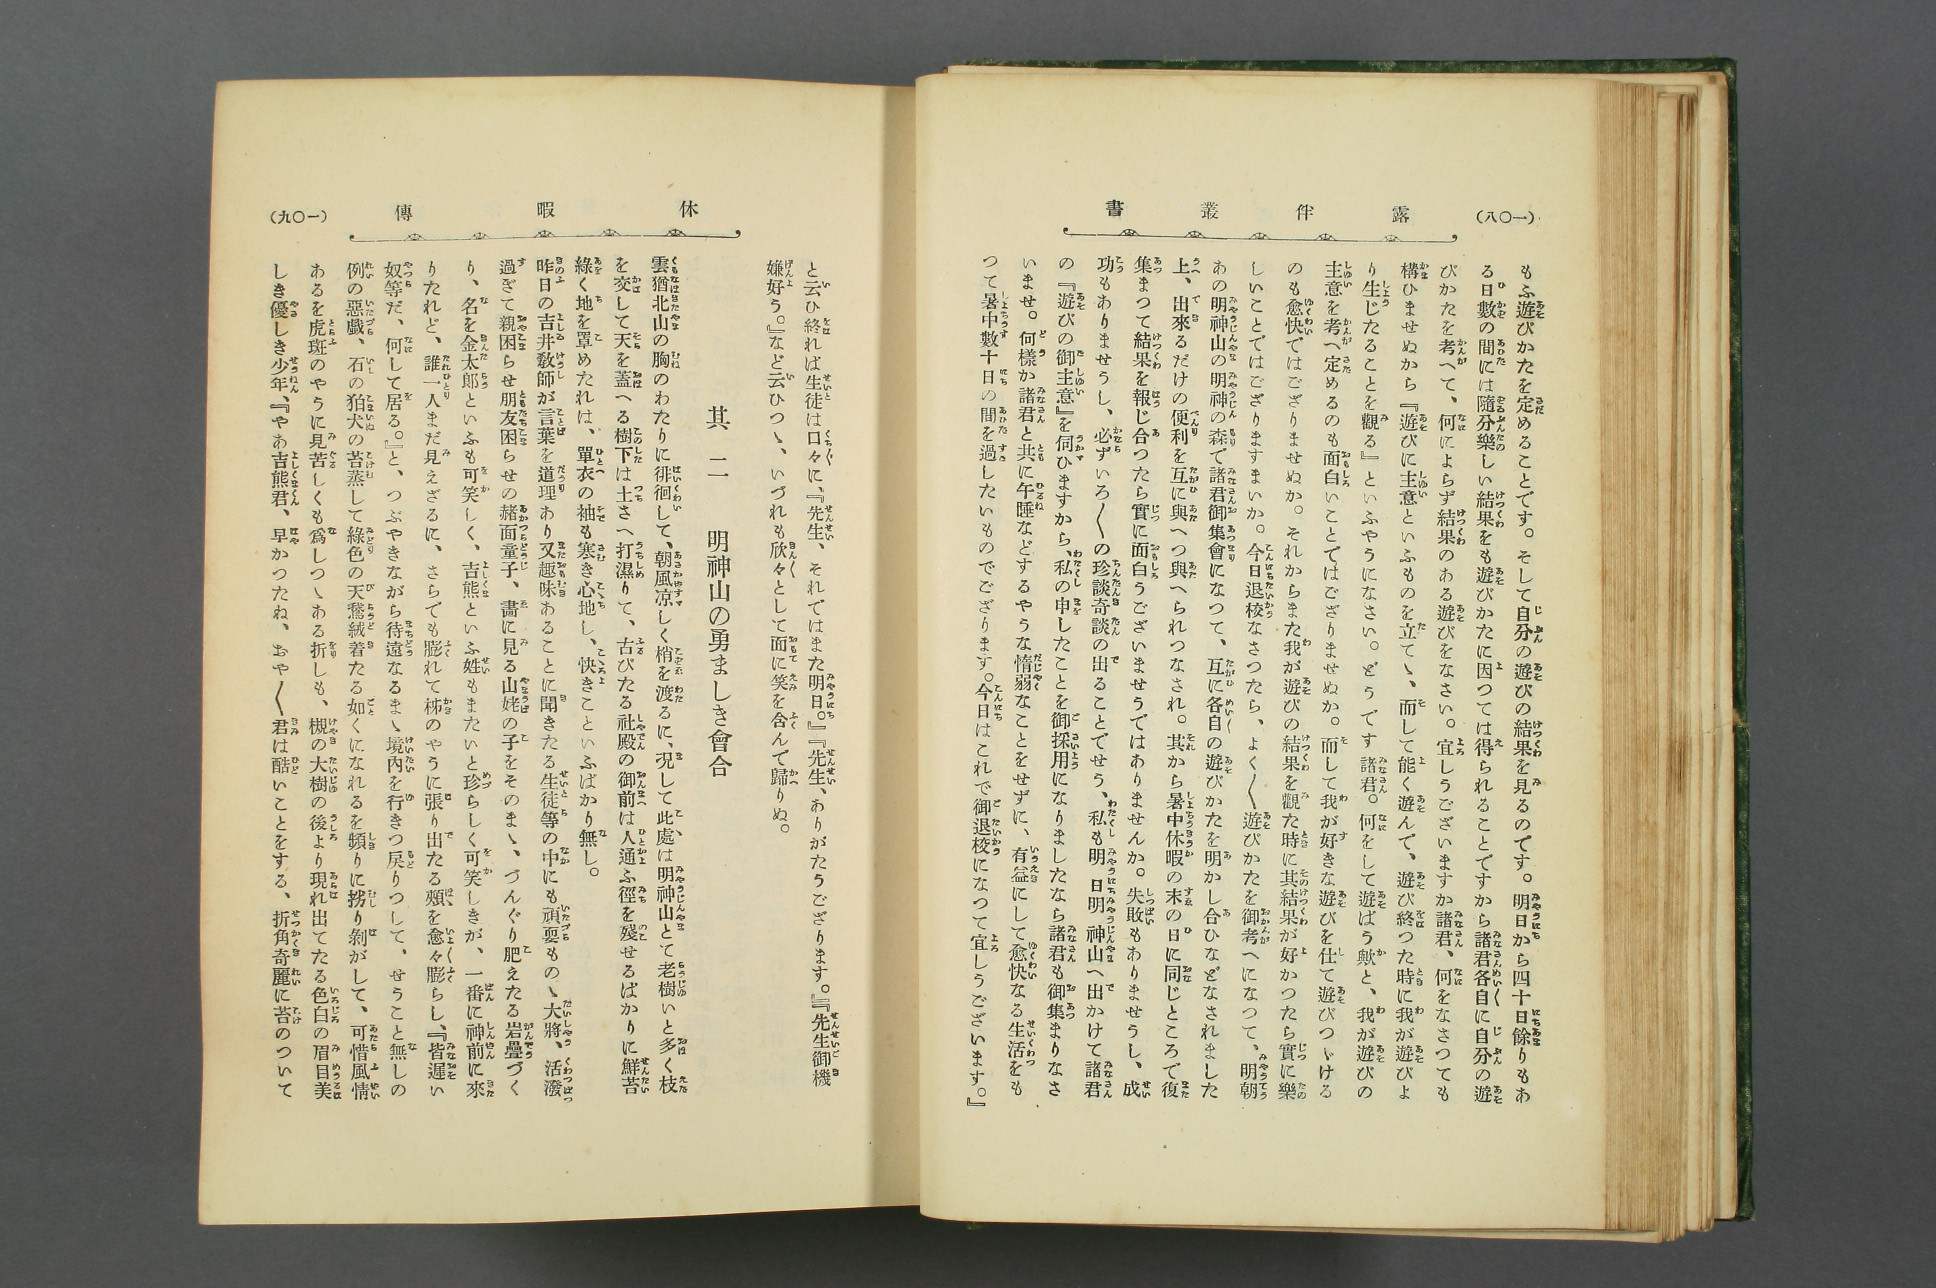 (一〇八)
露伴叢書
もふ遊びかたを定めることです。そして自分の遊びの結果を見るのです。明日から四十日餘りもあ
る日數の間には隨分樂しい結果をも遊びかたに因つては得られることですから諸君各自に自分の遊
びかたを考へて、何によらず結果のある遊びをなさい。宜しうございますか諸君、何をなさつても
構ひませぬから『遊びに主意といふものを立てゝ、而して能く遊んで、遊び終つた時に我が遊びよ
り生じたることを觀る』といふやうになさい。どうです諸君。何をして遊ばう歟と、我が遊びの
主意を考へ定めるのも面白いことではござりませぬか。而して我が好きな遊びを仕て遊びつゞける
のも愈快ではござりませぬか。それからまた我が遊びの結果を觀た時に其結果が好かつたら實に樂
しいことではござりますまいか。今日退校なさつたら、よく〱遊びかたを御考へになつて、明朝
あの明神山の明神の森で諸君御集會になつて、互に各自の遊びかたを明かし合ひなどなされました
上、出來るだけの便利を互に與へつ與へられつなされ。其から暑中休暇の末の日に同じところで復
集まつて結果を報じ合つたら實に面白うございませうではありませんか。失敗もありませうし、成
功もありませうし、必ずいろ〱の珍談奇談の出ることでせう、私も明日明神山へ出かけて諸君
の『遊びの御主意』を伺ひますから、私の申したことを御採用になりましたなら諸君も御集まりなさ
いませ。何樣か諸君と共に午睡などするやうな惰弱なことをせずに、有益にして愈快なる生活をも
つて暑中數十日の間を過したいものでござります。今日はこれで御退校になつて宜しうございます。』
休暇傳
(一〇九)
と云ひ終れば生徒は口々に、『先生、それではまた明日。』『先生、ありがたうござります。』『先生御機
嫌好う。』など云ひつゝ、いづれも欣々として面に笑を含んで歸りぬ。
其二　明神山の勇ましき會合
雲猶北山の胸のわたりに徘徊して、朝風凉しく梢を渡るに、况して此處は明神山とて老樹いと多く枝
を交して天を蓋へる樹下は土さへ打濕りて、古びたる社殿の御前は人通ふ徑を殘せるばかりに鮮苔
綠く地を罩めたれは、單衣の袖も寒き心地し、快きこといふばかり無し。
昨日の吉井敎師が言葉を道理あり又趣味あることに聞きたる生徒等の中にも頑耍もの、大將、活潑
過ぎて親困らせ朋友困らせの赭面童子、畵に見る山姥の子をそのまゝ、づんぐり肥えたる岩疊づく
り、名を金太郞といふも可笑しく、吉熊といふ姓もまたいと珍らしく可笑しきが、一番に神前に來
りたれど、誰一人まだ見えざるに、さらでも膨れて柿のやうに張り出たる頰を愈々膨らし、『皆遲い
奴等だ、何して居る。』と、つぶやきながら待遠なるまゝ境內を行きつ戾りつして、せうこと無しの
例の惡戲、石の狛犬の苔蒸して綠色の天鵞絨着たる如くになれるを頻りに撈り剝がして、可惜風情
あるを虎斑のやうに見苦しくも爲しつゝある折しも、槻の大樹の後より現れ出てたる色白の眉目美
しき優しき少年、『やあ吉熊君、早かつたね、おや〱君は酷いことをする、折角奇麗に苔のついて